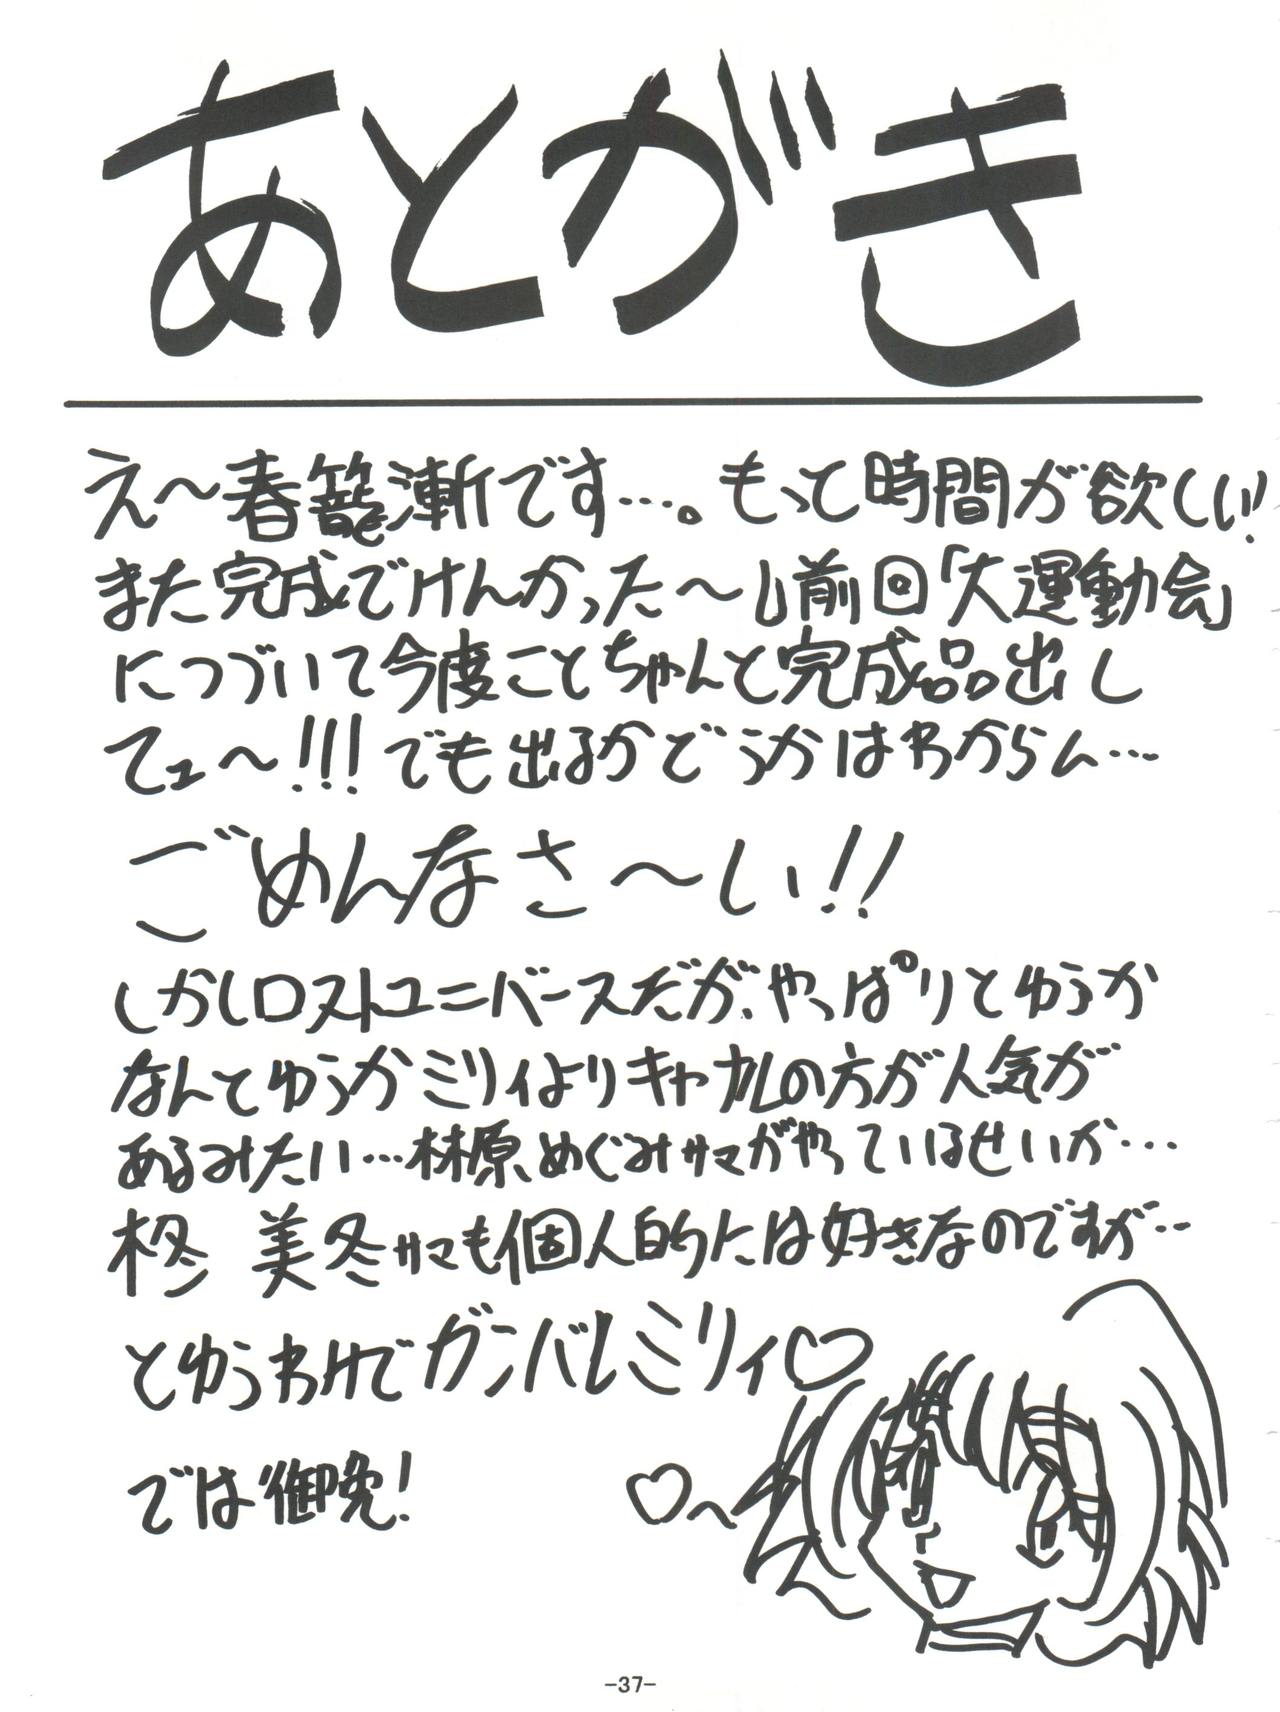 あとがき
え〜春籠漸です…。もって時間が欲しい!
また完成でけんかった〜し前回「大運動会」
につづいて今度ことちゃんと完成品出し
てュ〜!!!でも出るかどうかはわからん…
ごめんなさ〜い!!
しかしロストユニバースだが、やっぱりとゆうか
なんとゆうかミリィよりキャナルの方が人気が
あるみたい…林原めぐみサマがやっているせいか…
柊 美冬サマも個人的には好きなのですが…
とゆうわけでガンバレミリィ♡
では御免!
♡〜
-37-